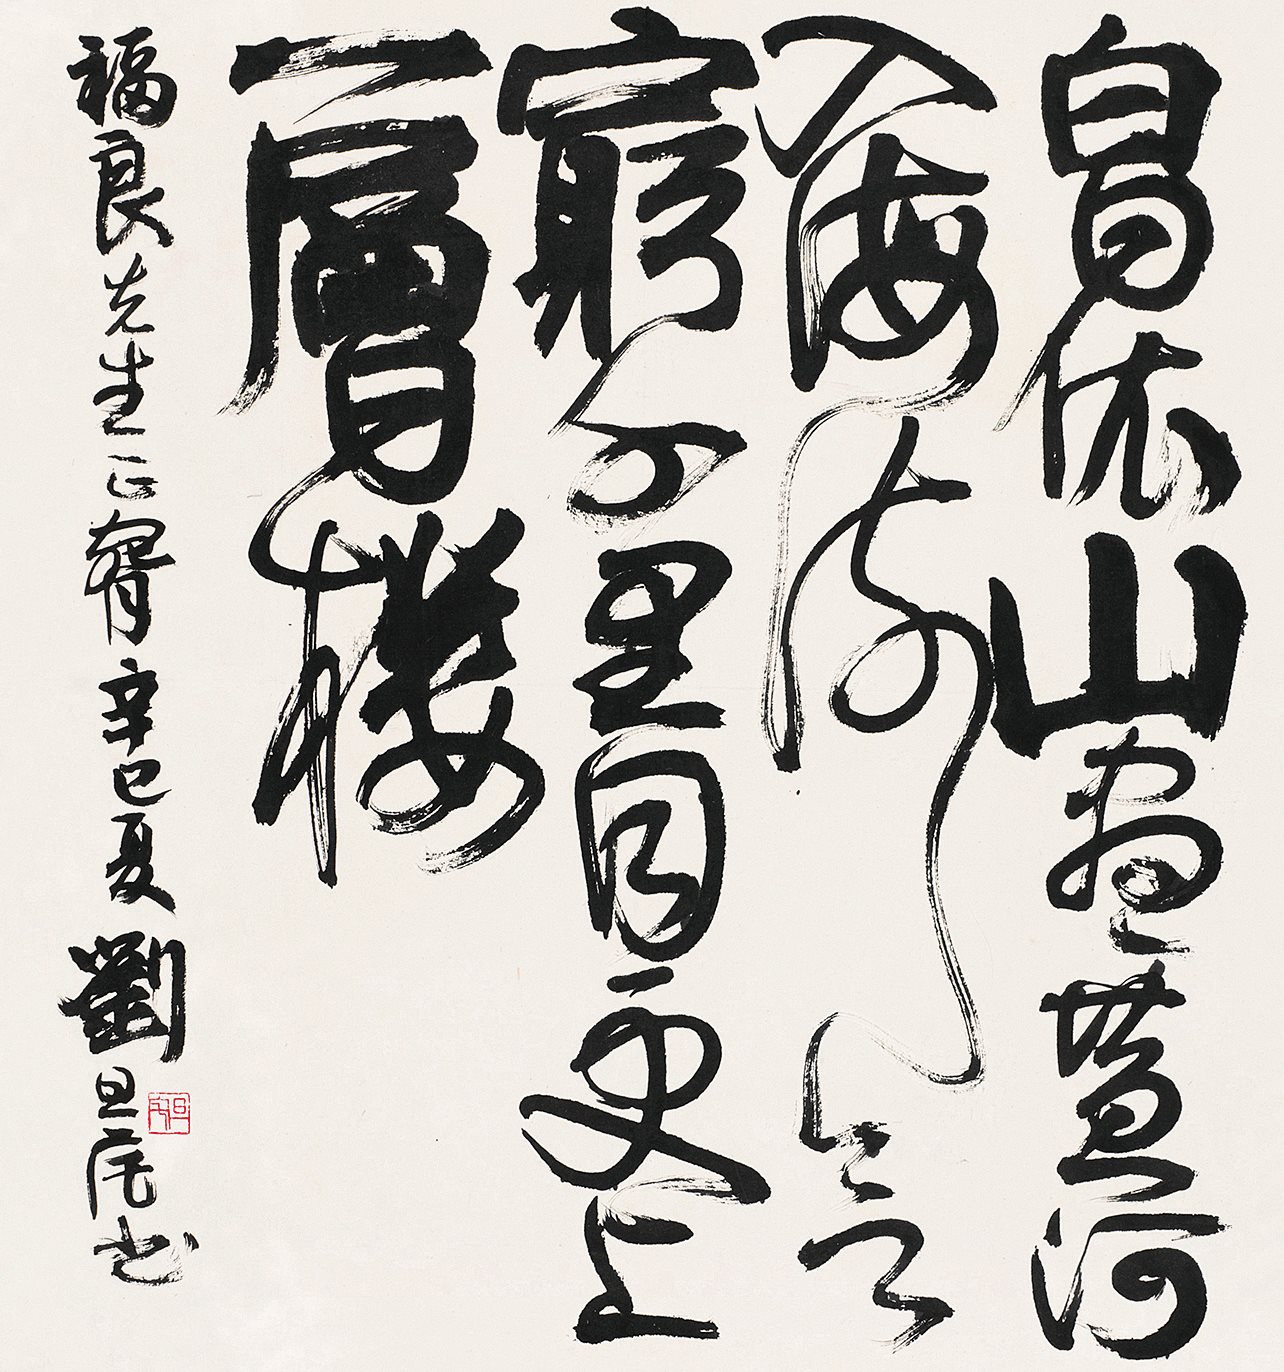 白日依山盡黃河
入海流欲
窮千里目更上
一層樓
福良先生正 辛巳夏 劉旦宅书